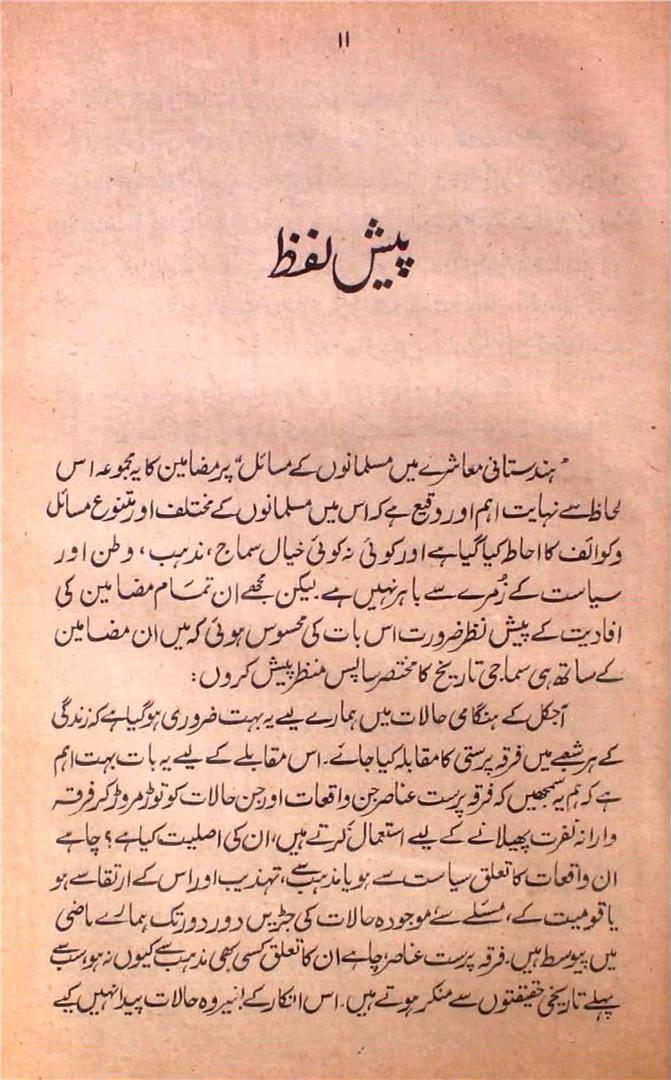 ۱۱
پیش لفظ
”ہندستانی معاشرے میں مسلمانوں کے مسائل“ پر مضامین کا یہ مجموعہ اس
لحاظ سے نہایت اہم اور وقیع ہے کہ اس میں مسلمانوں کے مختلف اور متنوع مسائل
و کوائف کا احاطہ کیا گیا ہے اور کوئی نہ کوئی خیال سماج، مذہب، وطن اور
سیاست کے زُمرے سے باہر نہیں ہے۔ لیکن مجھے ان تمام مضامین کی
افادیت کے پیش نظر ضرورت اس بات کی محسوس ہوئی کہ میں ان مضامین
کے ساتھ ہی سماجی تاریخ کا مختصر سا پس منظر پیش کروں:
آجکل کے ہنگامی حالات میں ہمارے لیے یہ بہت ضروری ہو گیا ہے کہ زندگی
کے ہر شعبے میں فرقہ پرستی کا مقابلہ کیا جائے۔ اس مقابلے کے لیے یہ بات بہت اہم
ہے کہ ہم یہ سمجھیں کہ فرقہ پرست عناصر جن واقعات اور جن حالات کو توڑ مروڑ کر فرقہ
وارانہ نفرت پھیلانے کے لیے استعمال کرتے ہیں، ان کی اصلیت کیا ہے؟ چاہے
ان واقعات کا تعلق سیاست سے ہو یا مذہب سے، تہذیب اور اس کے ارتقا سے ہو
یا قومیت کے، مسئلے سے موجودہ حالات کی جڑیں دور دور تک ہمارے ماضی
میں پیوسط ہیں۔ فرقہ پرست عناصر چاہے ان کا تعلق کسی بھی مذہب سے کیوں نہ ہو، سب سے
پہلے تاریخی حقیقتوں سے منکر ہوتے ہیں۔ اس انکار کے بغیر وہ حالات پیدا نہیں کیے